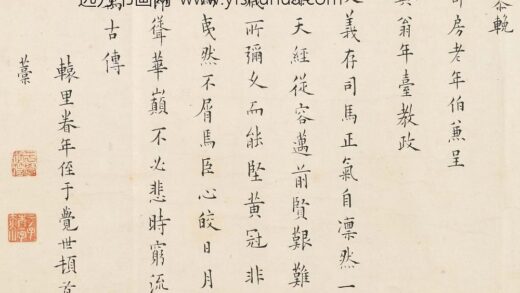 恭輓
房老年伯兼呈
翁年臺教政
義存司馬正氣自凜然一
天經從容邁前賢艱難
所彌久而能堅黃冠非
夷然不屑馬臣心皎日月
聳華巔不必悲時窮流
古傳
轅里眷年侄于覺世頓首
藁